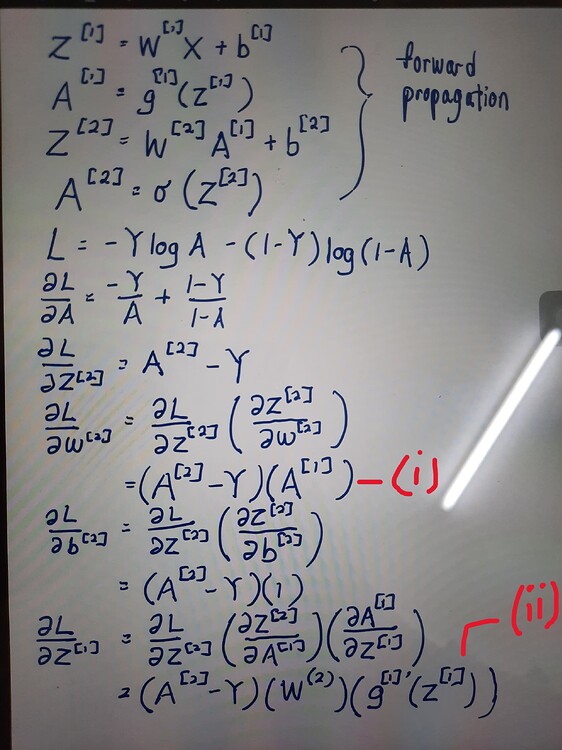 Z^[1] = W^[1]X + b^[1]
A^[1] = g^[1](Z^[1])
Z^[2] = W^[2] A^[1] + b^[2]
A^[2] = σ(Z^[2])
forward
propagation
L = -Y log A - (1-Y) log(1-A)
∂L/∂A = -Y/A + 1-Y/1-A
∂L/∂Z^[2] = A^[2] - Y
∂L/∂W^[2] = ∂L/∂Z^[2] (∂Z^[2]/∂W^[2])
= (A^[2] - Y)(A^[1]) - (i)
∂L/∂b^[2] = ∂L/∂Z^[2] (∂Z^[2]/∂b^[2])
= (A^[2] - Y)(1)
∂L/∂Z^[1] = ∂L/∂Z^[2] (∂Z^[2]/∂A^[1])(∂A^[1]/∂Z^[1])
(ii)
= (A^[2] - Y)(W^(2))(g^[1]'(Z^[1]))